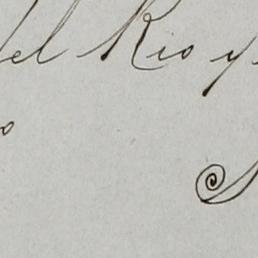 del Rio y
o
S